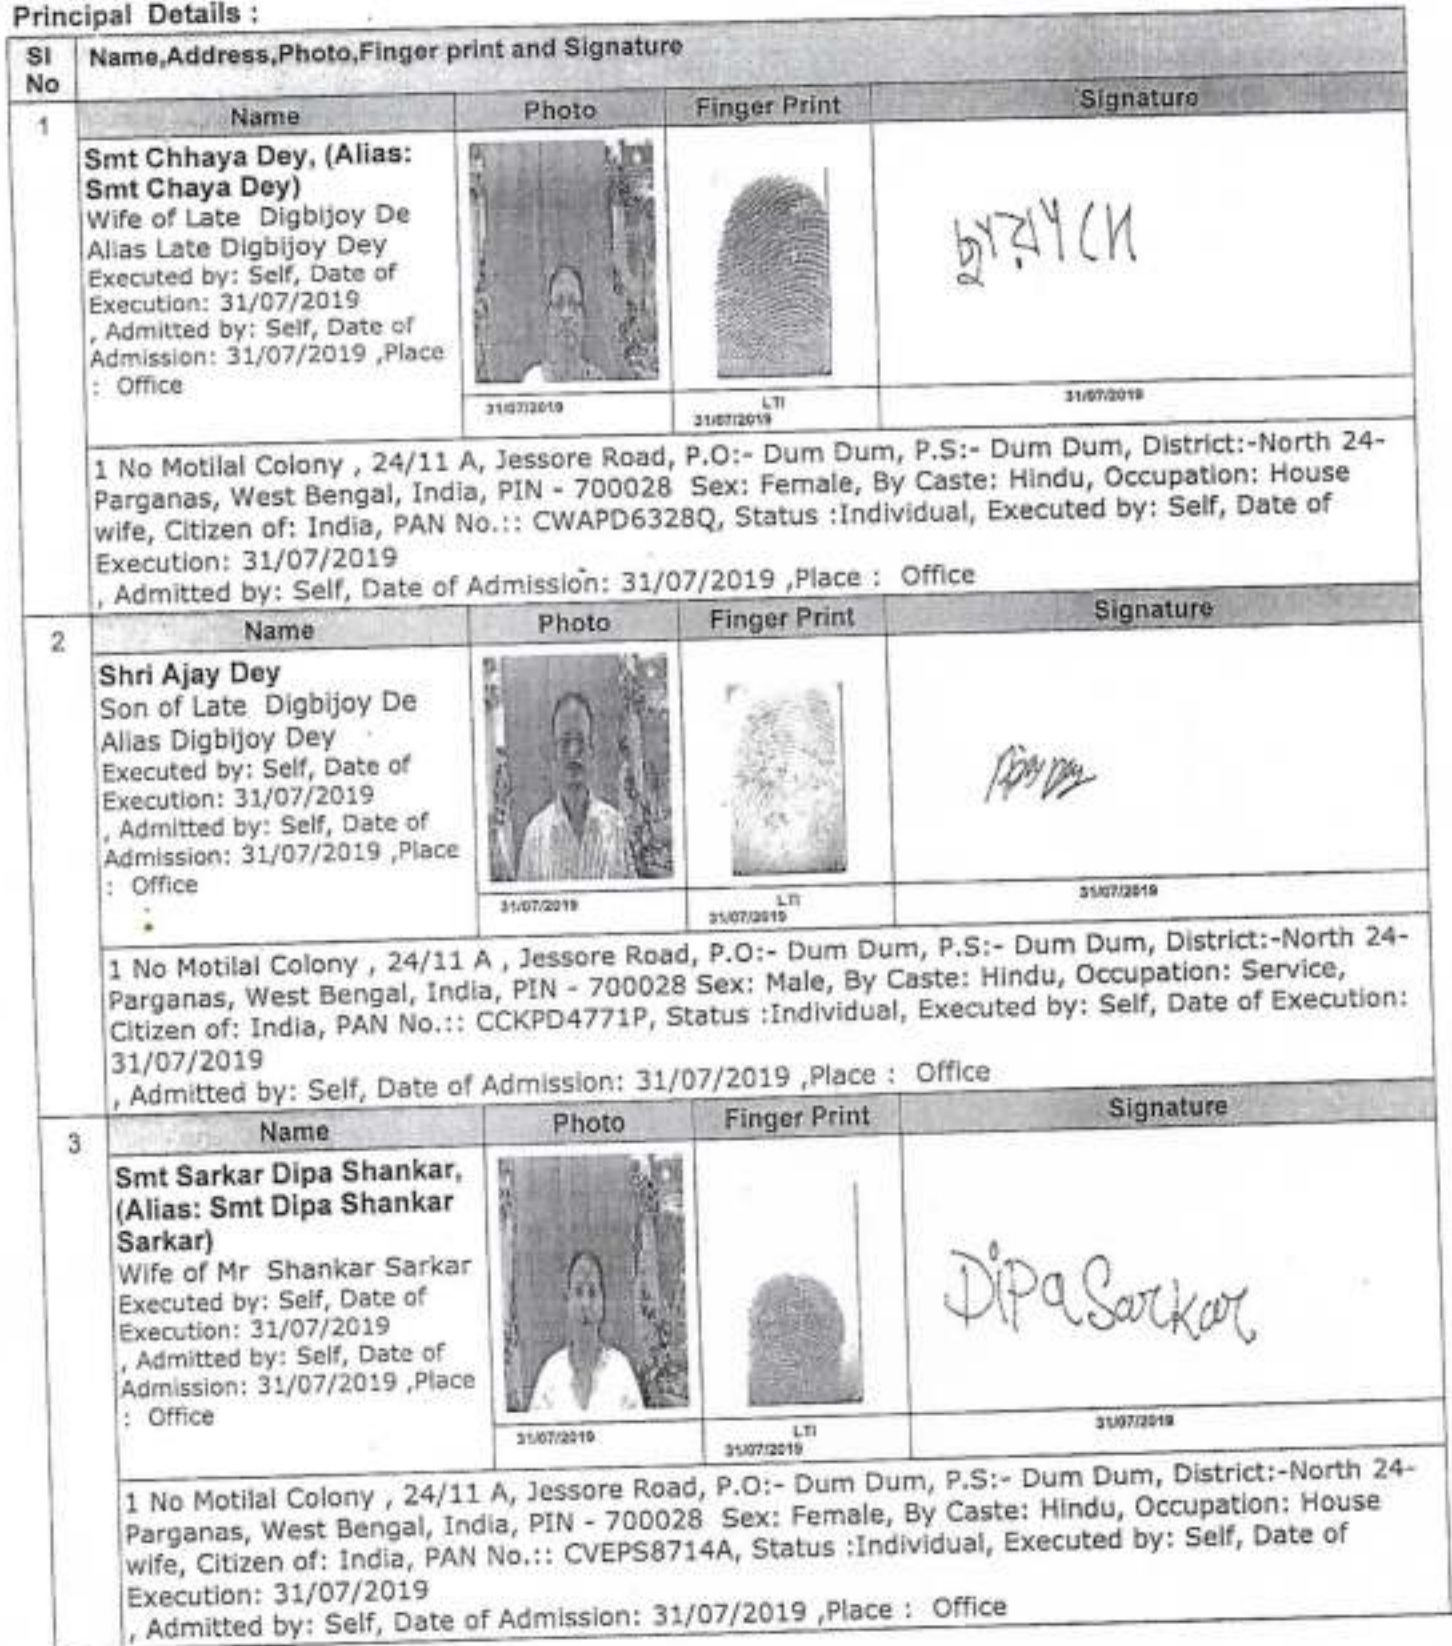 Principal Details :
Sl No Name,Address,Photo,Finger print and Signature
1 Name Photo Finger Print Signature
Smt Chhaya Dey, (Alias:
Smt Chaya Dey)
Wife of Late Digbijoy De
Alias Late Digbijoy Dey
Executed by: Self, Date of
Execution: 31/07/2019
, Admitted by: Self, Date of
Admission: 31/07/2019 ,Place
: Office
31/07/2019
LTI
31/07/2019
31/07/2019
1 No Motilal Colony , 24/11 A, Jessore Road, P.O:- Dum Dum, P.S:- Dum Dum, District:-North 24-
Parganas, West Bengal, India, PIN - 700028 Sex: Female, By Caste: Hindu, Occupation: House
wife, Citizen of: India, PAN No.:: CWAPD6328Q, Status :Individual, Executed by: Self, Date of
Execution: 31/07/2019
, Admitted by: Self, Date of Admission: 31/07/2019 ,Place : Office
2 Name Photo Finger Print Signature
Shri Ajay Dey
Son of Late Digbijoy De
Alias Digbijoy Dey
Executed by: Self, Date of
Execution: 31/07/2019
, Admitted by: Self, Date of
Admission: 31/07/2019 ,Place
: Office
Ajay Dey
31/07/2019
LTI
31/07/2019
31/07/2019
1 No Motilal Colony , 24/11 A , Jessore Road, P.O:- Dum Dum, P.S:- Dum Dum, District:-North 24-
Parganas, West Bengal, India, PIN - 700028 Sex: Male, By Caste: Hindu, Occupation: Service,
Citizen of: India, PAN No.:: CCKPD4771P, Status :Individual, Executed by: Self, Date of Execution:
31/07/2019
, Admitted by: Self, Date of Admission: 31/07/2019 ,Place : Office
3 Name Photo Finger Print Signature
Smt Sarkar Dipa Shankar,
(Alias: Smt Dipa Shankar
Sarkar)
Wife of Mr Shankar Sarkar
Executed by: Self, Date of
Execution: 31/07/2019
, Admitted by: Self, Date of
Admission: 31/07/2019 ,Place
: Office
Dipa Sarkar
31/07/2019
LTI
31/07/2019
31/07/2019
1 No Motilal Colony , 24/11 A, Jessore Road, P.O:- Dum Dum, P.S:- Dum Dum, District:-North 24-
Parganas, West Bengal, India, PIN - 700028 Sex: Female, By Caste: Hindu, Occupation: House
wife, Citizen of: India, PAN No.:: CVEPS8714A, Status :Individual, Executed by: Self, Date of
Execution: 31/07/2019
, Admitted by: Self, Date of Admission: 31/07/2019 ,Place : Office